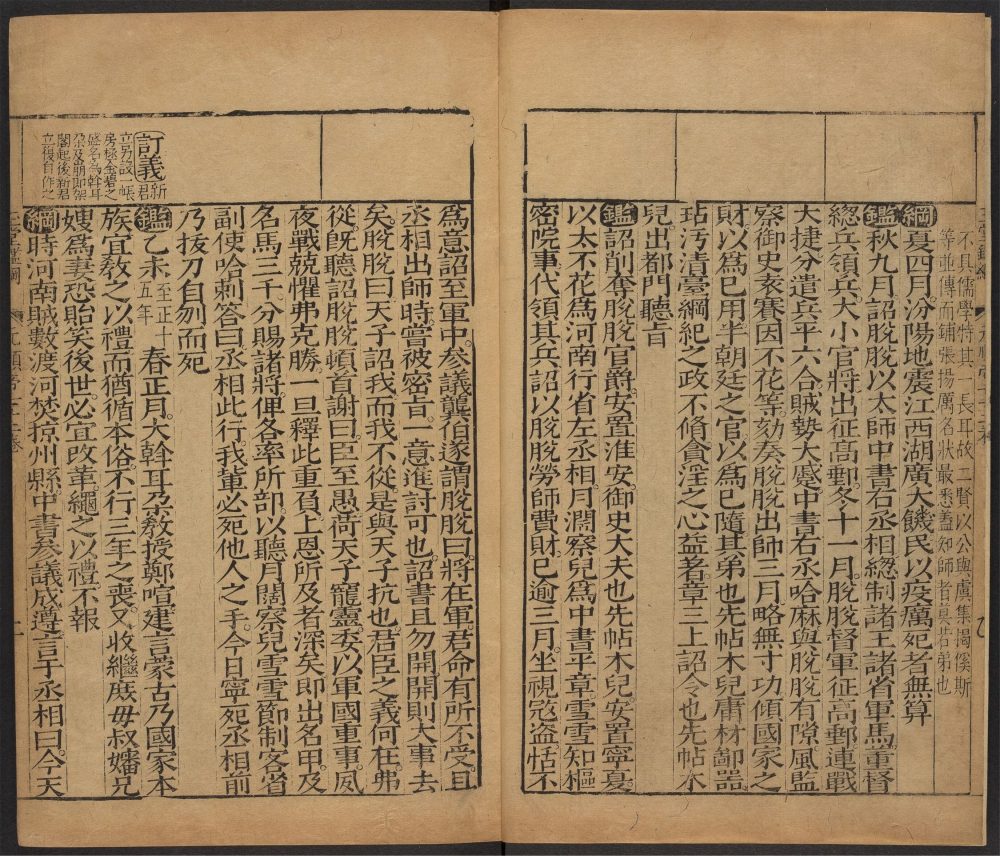 不具儒學特其一長耳故二賢以公與虞集揭傒斯
等並傳而鋪張揚厲名狀最悉蓋知師者莫若弟也
綱夏四月汾陽地震江西湖廣大饑民以疫癘死者無算
鑑秋九月詔脫脫以太師中書右丞相總制諸王諸省軍馬董督
總兵領兵大小官將出征高郵冬十一月脫脫督軍征高郵連戰
大捷分遣兵平六合賊勢大蹙中書右丞哈麻與脫脫有隙風監
察御史袁賽因不花等劾奏脫脫出師三月略無寸功傾國家之
財以為己用半朝廷之官以為己隨其弟也先帖木兒庸材鄙器
玷污清臺綱紀之政不脩貪淫之心益著章三上詔令也先帖木
兒出都門聽旨
鑑詔削奪脫脫官爵安置淮安御史大夫也先帖木兒安置寧夏
以太不花為河南行省左丞相月濶察兒為中書平章雪雪知樞
密院事代領其兵詔以脫脫勞師費財已逾三月坐視宼盗恬不
為意詔至軍中參議龔伯遂謂脫脫曰將在軍君命有所不受且
丞相出師時嘗被密旨一意進討可也詔書且勿開開則大事去
矣脫脫曰天子詔我而我不從是與天子抗也君臣之義何在弗
從旣聽詔脫脫頓首謝曰臣至愚荷天子寵靈委以軍國重事夙
夜戰兢懼弗克勝一旦釋此重負上恩所及者深矣即出名甲及
名馬三千分賜諸將俾各率所部以聽月闊察兒雪雪節制客省
副使哈剌答曰丞相此行我軰必死他人之手今日寧死丞相前
乃拔刀自刎而死
訂義新君
立另設一帳
房極金碧之
盛名為斡耳
朶及崩即架
閣起後新君
立復自作之
鑑乙未至正十五年春正月大斡耳朶教授鄭咺建言蒙古乃國家本
族宜敎之以禮而猶循本俗不行三年之喪又收繼庶毋叔嬸兄
嫂為妻恐貽笑後世必宜改革繩之以禮不報
綱時河南賊數渡河焚掠州縣中書參議成遵言于丞相曰今天